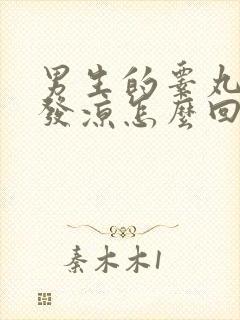 男生的睪丸
發涼怎麼回
秦木木1